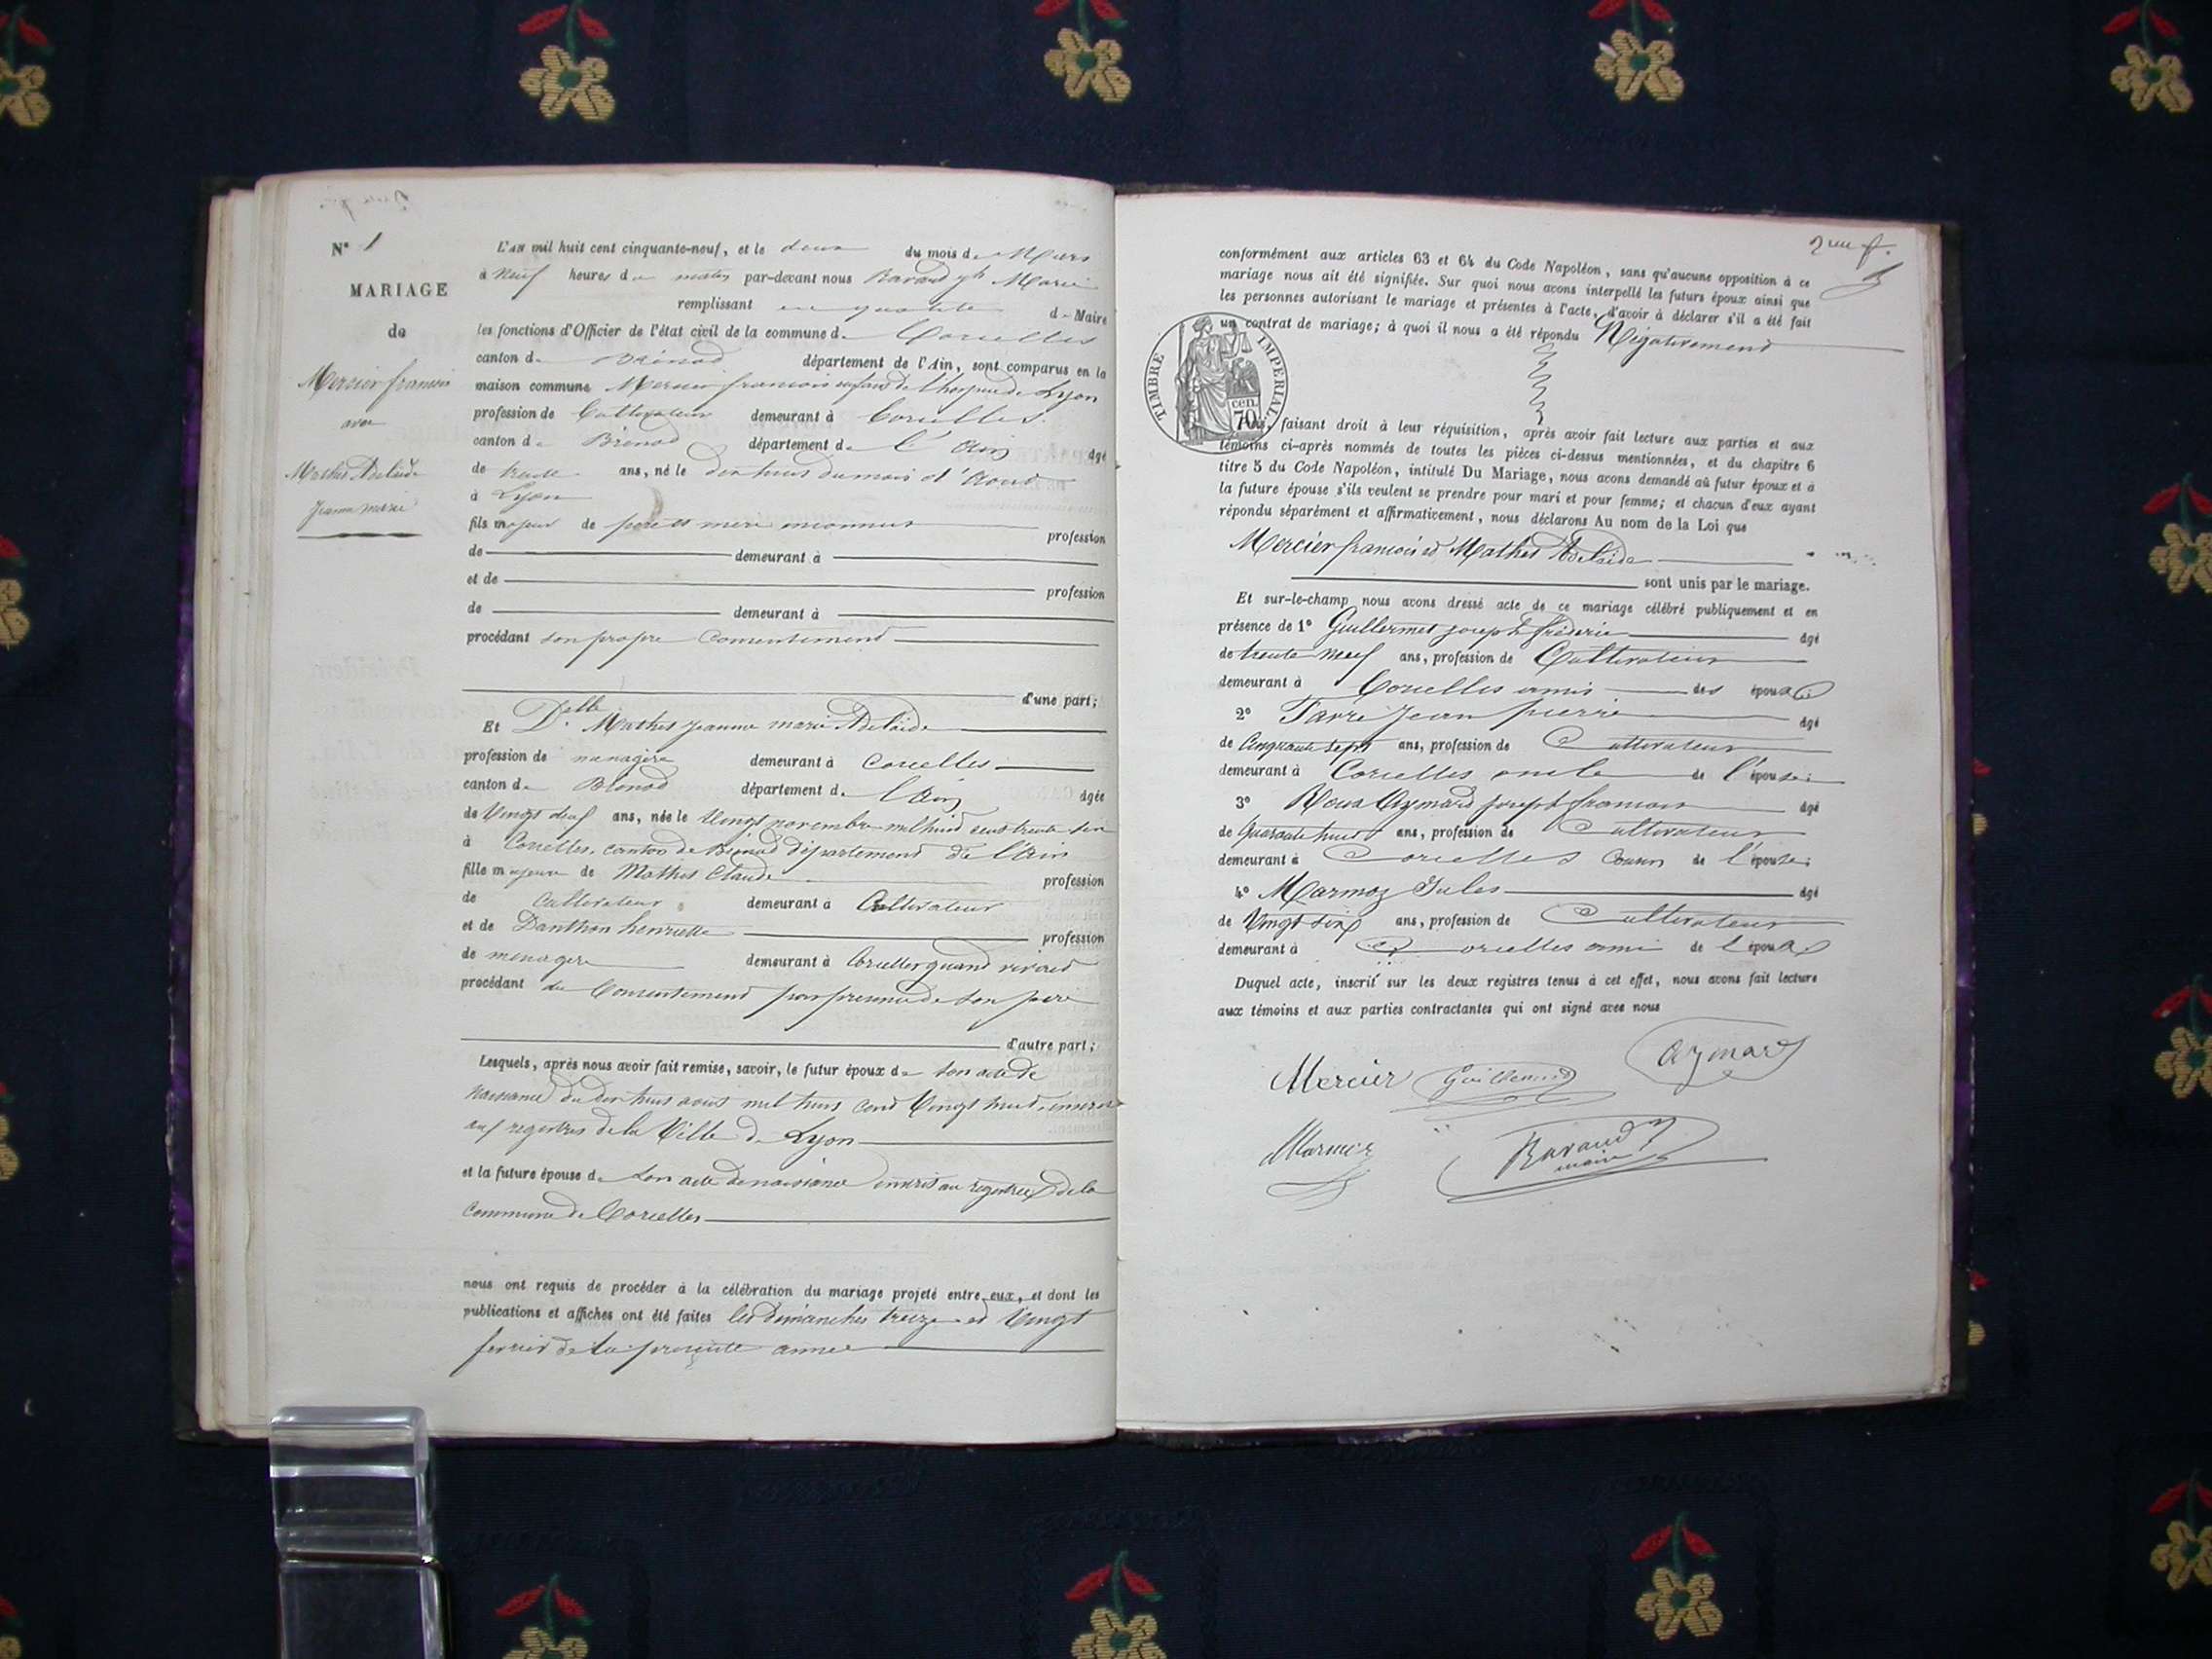 N° 1
MARIAGE
de
Mercier francois
avec
Mathis Adelaide
Jeanne marie
L'an mil huit cent cinquante-neuf, et le deux du mois de Mars
à Neuf heures du matin par-devant nous Ravaud Marie
remplissant en qualité de Maire
les fonctions d'Officier de l'état civil de la commune de Corcelles
canton de Brénod département de l'Ain, sont comparus en la
maison commune Mercier francois enfant de l'hospice de Lyon
profession de Cultivateur demeurant à Corcelles
canton de Brénod département de l'Ain âgé
de trente ans, né le dix huit du mois d'Aout
à Lyon
fils majeur de père et mere inconnus profession
de demeurant à
et de profession
de demeurant à
procédant son propre Consentement
d'une part;
Et Delle Mathis Jeanne marie Adelaide
profession de ménagère demeurant à Corcelles
canton de Brénod département de l'Ain âgée
de Vingt deux ans, née le Vingt novembre mil huit cent trente six
à Corcelles, canton de Brénod département de l'Ain
fille majeure de Mathis Claude profession
de Cultivateur demeurant à Cultivateur
et de Danthon henriette profession
de menagere demeurant à Corcelles quand vivait
procédant du Consentement par presence de son pere
d'autre part;
Lesquels, après nous avoir fait remise, savoir, le futur époux de son acte de
naissance du dix huit aout mil huit cent Vingt huit, inscrit
aux registres de la Ville de Lyon
et la future épouse de son acte de naissance inscrit au registre de la
Commune de Corcelles
nous ont requis de procéder à la célébration du mariage projeté entre eux, et dont les
publications et affiches ont été faites les dimanches treize et Vingt
fevrier de la presente année
2me f.
conformément aux articles 63 et 64 du Code Napoléon, sans qu'aucune opposition à ce
mariage nous ait été signifiée. Sur quoi nous avons interpellé les futurs époux ainsi que
les personnes autorisant le mariage et présentes à l'acte, d'avoir à déclarer s'il a été fait
un contrat de mariage; à quoi il nous a été répondu Négativement
TIMBRE IMPÉRIAL
70 cen.
Puis, faisant droit à leur réquisition, après avoir fait lecture aux parties et aux
témoins ci-après nommés de toutes les pièces ci-dessus mentionnées, et du chapitre 6
titre 5 du Code Napoléon, intitulé Du Mariage, nous avons demandé aû futur époux et à
la future épouse s'ils veulent se prendre pour mari et pour femme; et chacun d'eux ayant
répondu séparément et affirmativement, nous déclarons Au nom de la Loi que
Mercier francois et Mathis Adelaide
sont unis par le mariage.
Et sur-le-champ nous avons dressé acte de ce mariage célébré publiquement et en
présence de 1° Guillermet joseph frédéric âgé
de trente neuf ans, profession de Cultivateur
demeurant à Corcelles amis des époux
2° Favre Jean pierre âgé
de Cinquante sept ans, profession de Cultivateur
demeurant à Corcelles oncle de l'épouse;
3° Roux Aymard joseph francois âgé
de Quarante huit ans, profession de Cultivateur
demeurant à Corcelles Cousin de l'épouse;
4° Marmoz Jules âgé
de Vingt six ans, profession de Cultivateur
demeurant à Corcelles ami de l'époux
Duquel acte, inscrit sur les deux registres tenus à cet effet, nous avons fait lecture
aux témoins et aux parties contractantes qui ont signé avec nous
Mercier Guillermet aymard
Marmoz Ravaud
maire